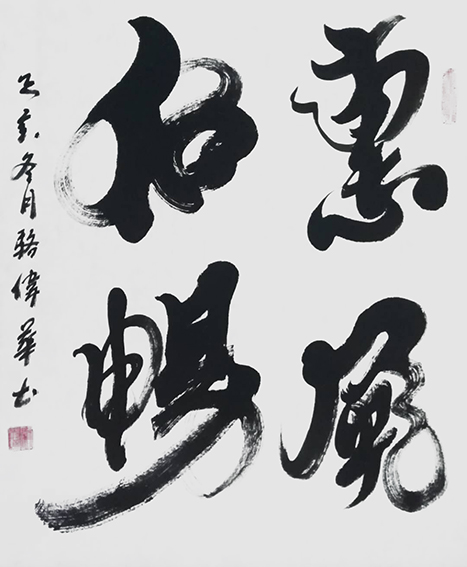 惠風
和暢
己亥冬月駱偉華書